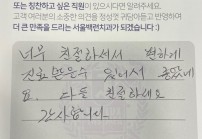 또는 칭찬하고 싶은 직원이 있으시다면 일려주세요.
고객 여러분의 소중한 의견을 정성껏 귀담아듣고 반영하여
더 큰 만족을 드리는 서울백련치과가 되겠습니다 :)
너무 친절하셔서 편하게
진료 받은수 있어서 좋았네
요. 다들 친절하세요
감사합니다.